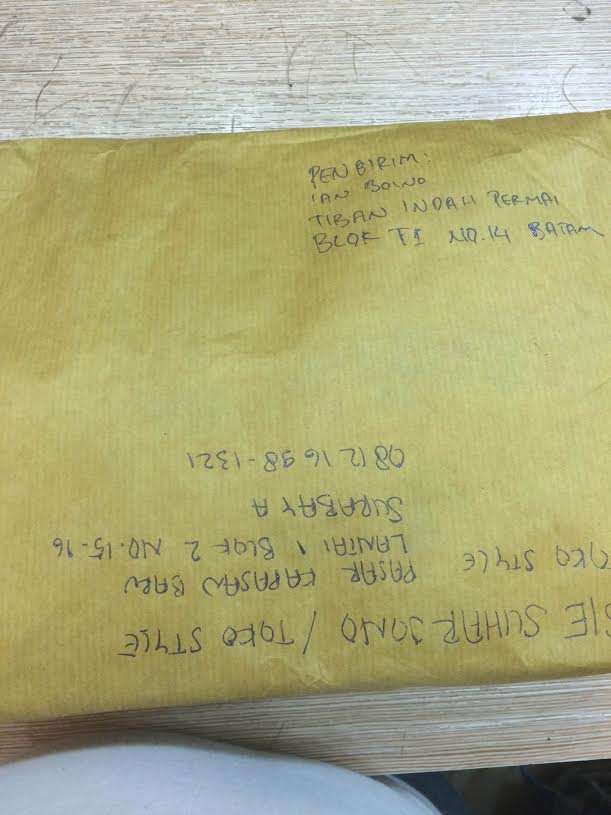 PENBIRIM:
IAN BOWO
TIBAN INDAH PERMAI
BLOK FI NO.14 BATAM
SIE SUHARJONO / TOKO STYLE
TOKO STYLE
PASAR KAPASAN BARU
LANTAI 1 BLOK 2 NO.15-16
SURABAYA
0812 1698-1321